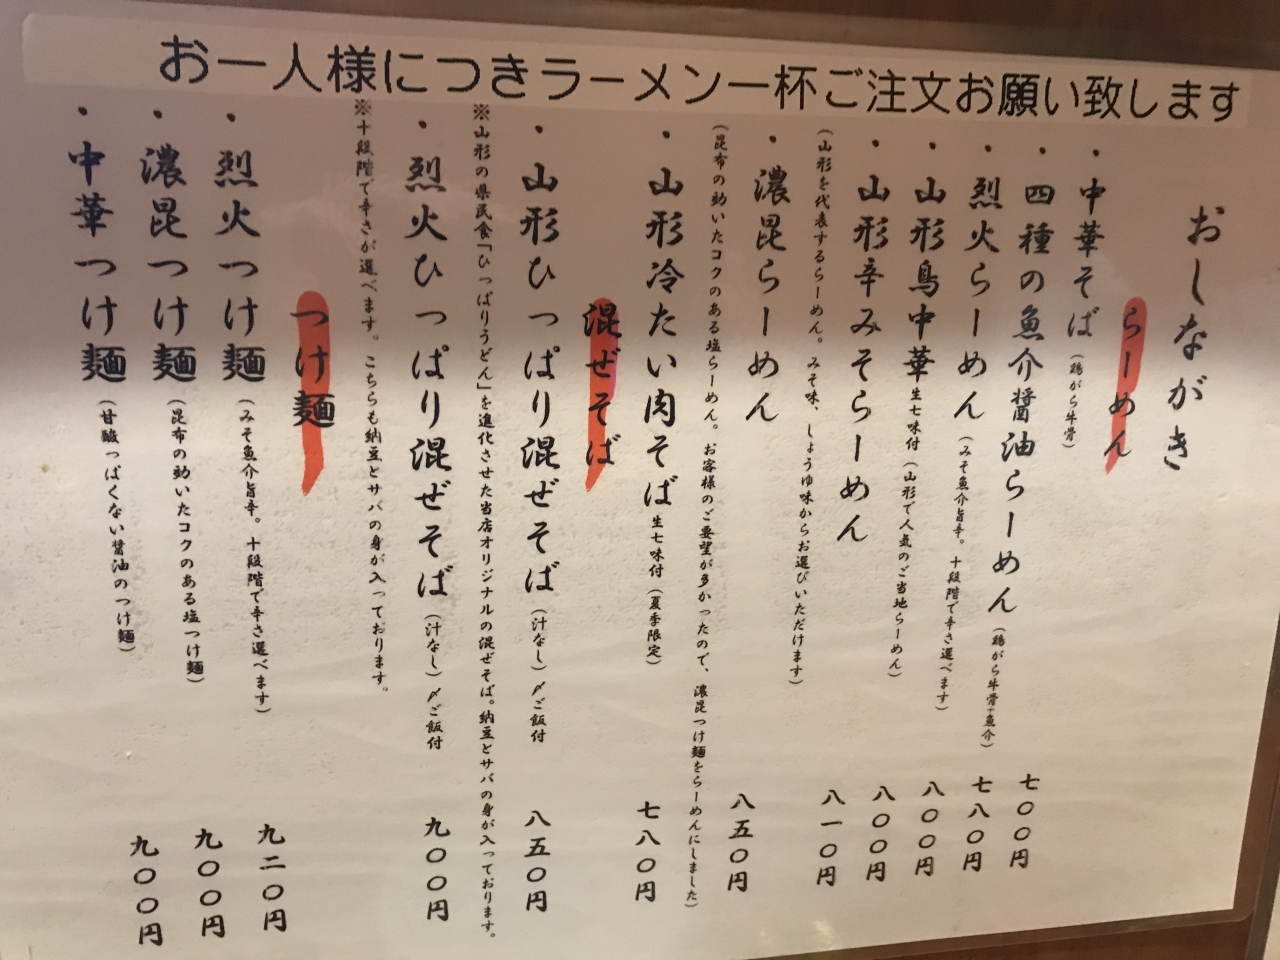 お一人様につきラーメン一杯ご注文お願い致します
おしながき
らーめん
・中華そば(鶏がら牛骨) 七〇〇円
・四種の魚介醤油らーめん(鶏がら牛骨+魚介) 七八〇円
・烈火らーめん(みそ魚介旨辛。十段階で辛さ選べます) 八〇〇円
・山形鳥中華生七味付(山形で人気のご当地らーめん) 八〇〇円
・山形辛みそらーめん 八一〇円
(山形を代表するらーめん。みそ味、しょうゆ味からお選びいただけます)
・濃昆らーめん 八五〇円
(昆布の効いたコクのある塩らーめん。お客様のご要望が多かったので、濃昆つけ麺をらーめんにしました)
・山形冷たい肉そば生七味付(夏季限定) 七八〇円
混ぜそば
・山形ひっぱり混ぜそば(汁なし)〆ご飯付 八五〇円
※山形の県民食「ひっぱりうどん」を進化させた当店オリジナルの混ぜそば。納豆とサバの身が入っております。
・烈火ひっぱり混ぜそば(汁なし)〆ご飯付 九〇〇円
※十段階で辛さが選べます。こちらも納豆とサバの身が入っております。
つけ麺
・烈火つけ麺(みそ魚介旨辛。十段階で辛さ選べます) 九二〇円
・濃昆つけ麺(昆布の効いたコクのある塩つけ麺) 九〇〇円
・中華つけ麺(甘酸っぱくない醤油のつけ麺) 九〇〇円